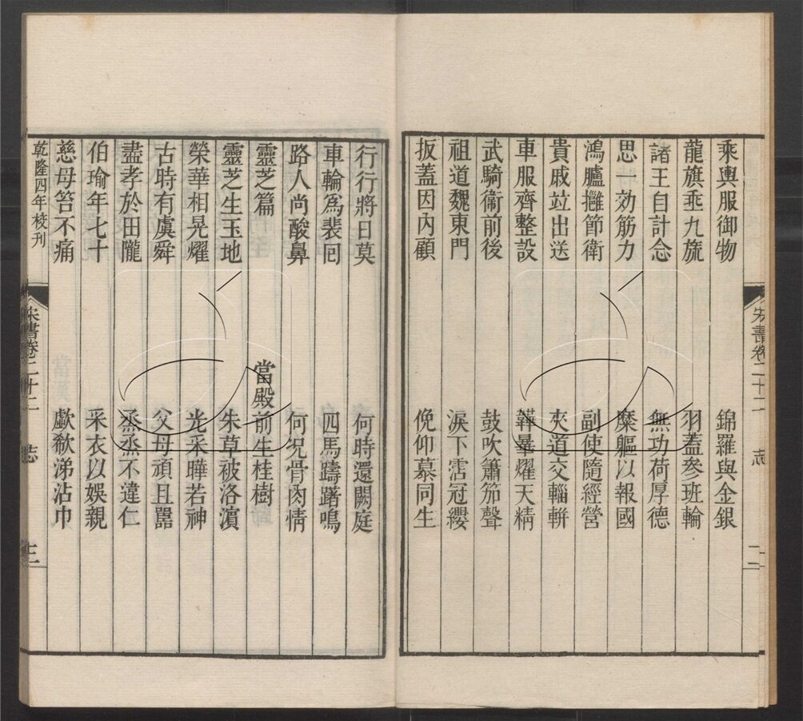 乘輿服御物 錦羅與金銀
龍旂垂九旒 羽蓋參班輪
諸王自計念 無功荷厚德
思一効筋力 糜軀以報國
鴻臚擁節衛 副使隨經營
貴戚竝出送 夾道交輜輧
車服齊整設 韡曅耀天精
武騎衞前後 鼓吹簫笳聲
祖道魏東門 淚下霑冠纓
扳蓋因內顧 俛仰慕同生
行行將日莫 何時還闕庭
車輪爲裴回 四馬躊躇鳴
路人尚酸鼻 何况骨肉情
靈芝篇 當殿前生桂樹
靈芝生玉地 朱草被洛濱
榮華相晃耀 光采曄若神
古時有虞舜 父母頑且嚚
盡孝於田隴 烝烝不違仁
伯瑜年七十 采衣以娛親
慈母笞不痛 歔欷涕沾巾
乾隆四年校刊 宋書卷二十二 志 三
宋書卷二十二 志 二